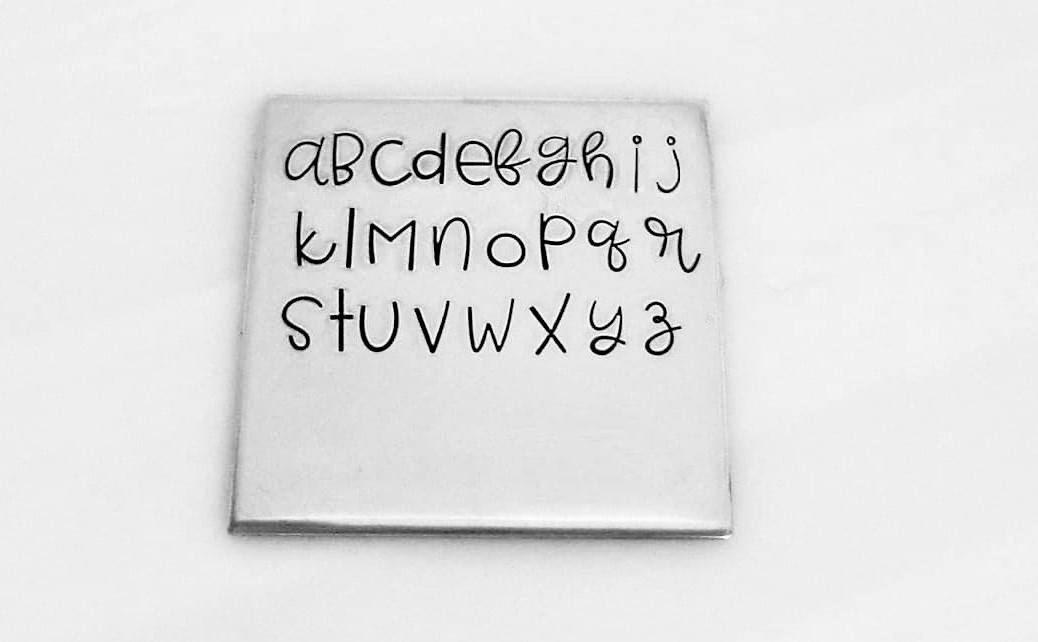 aBCdefghij
klMnopqr
stuvwxyz